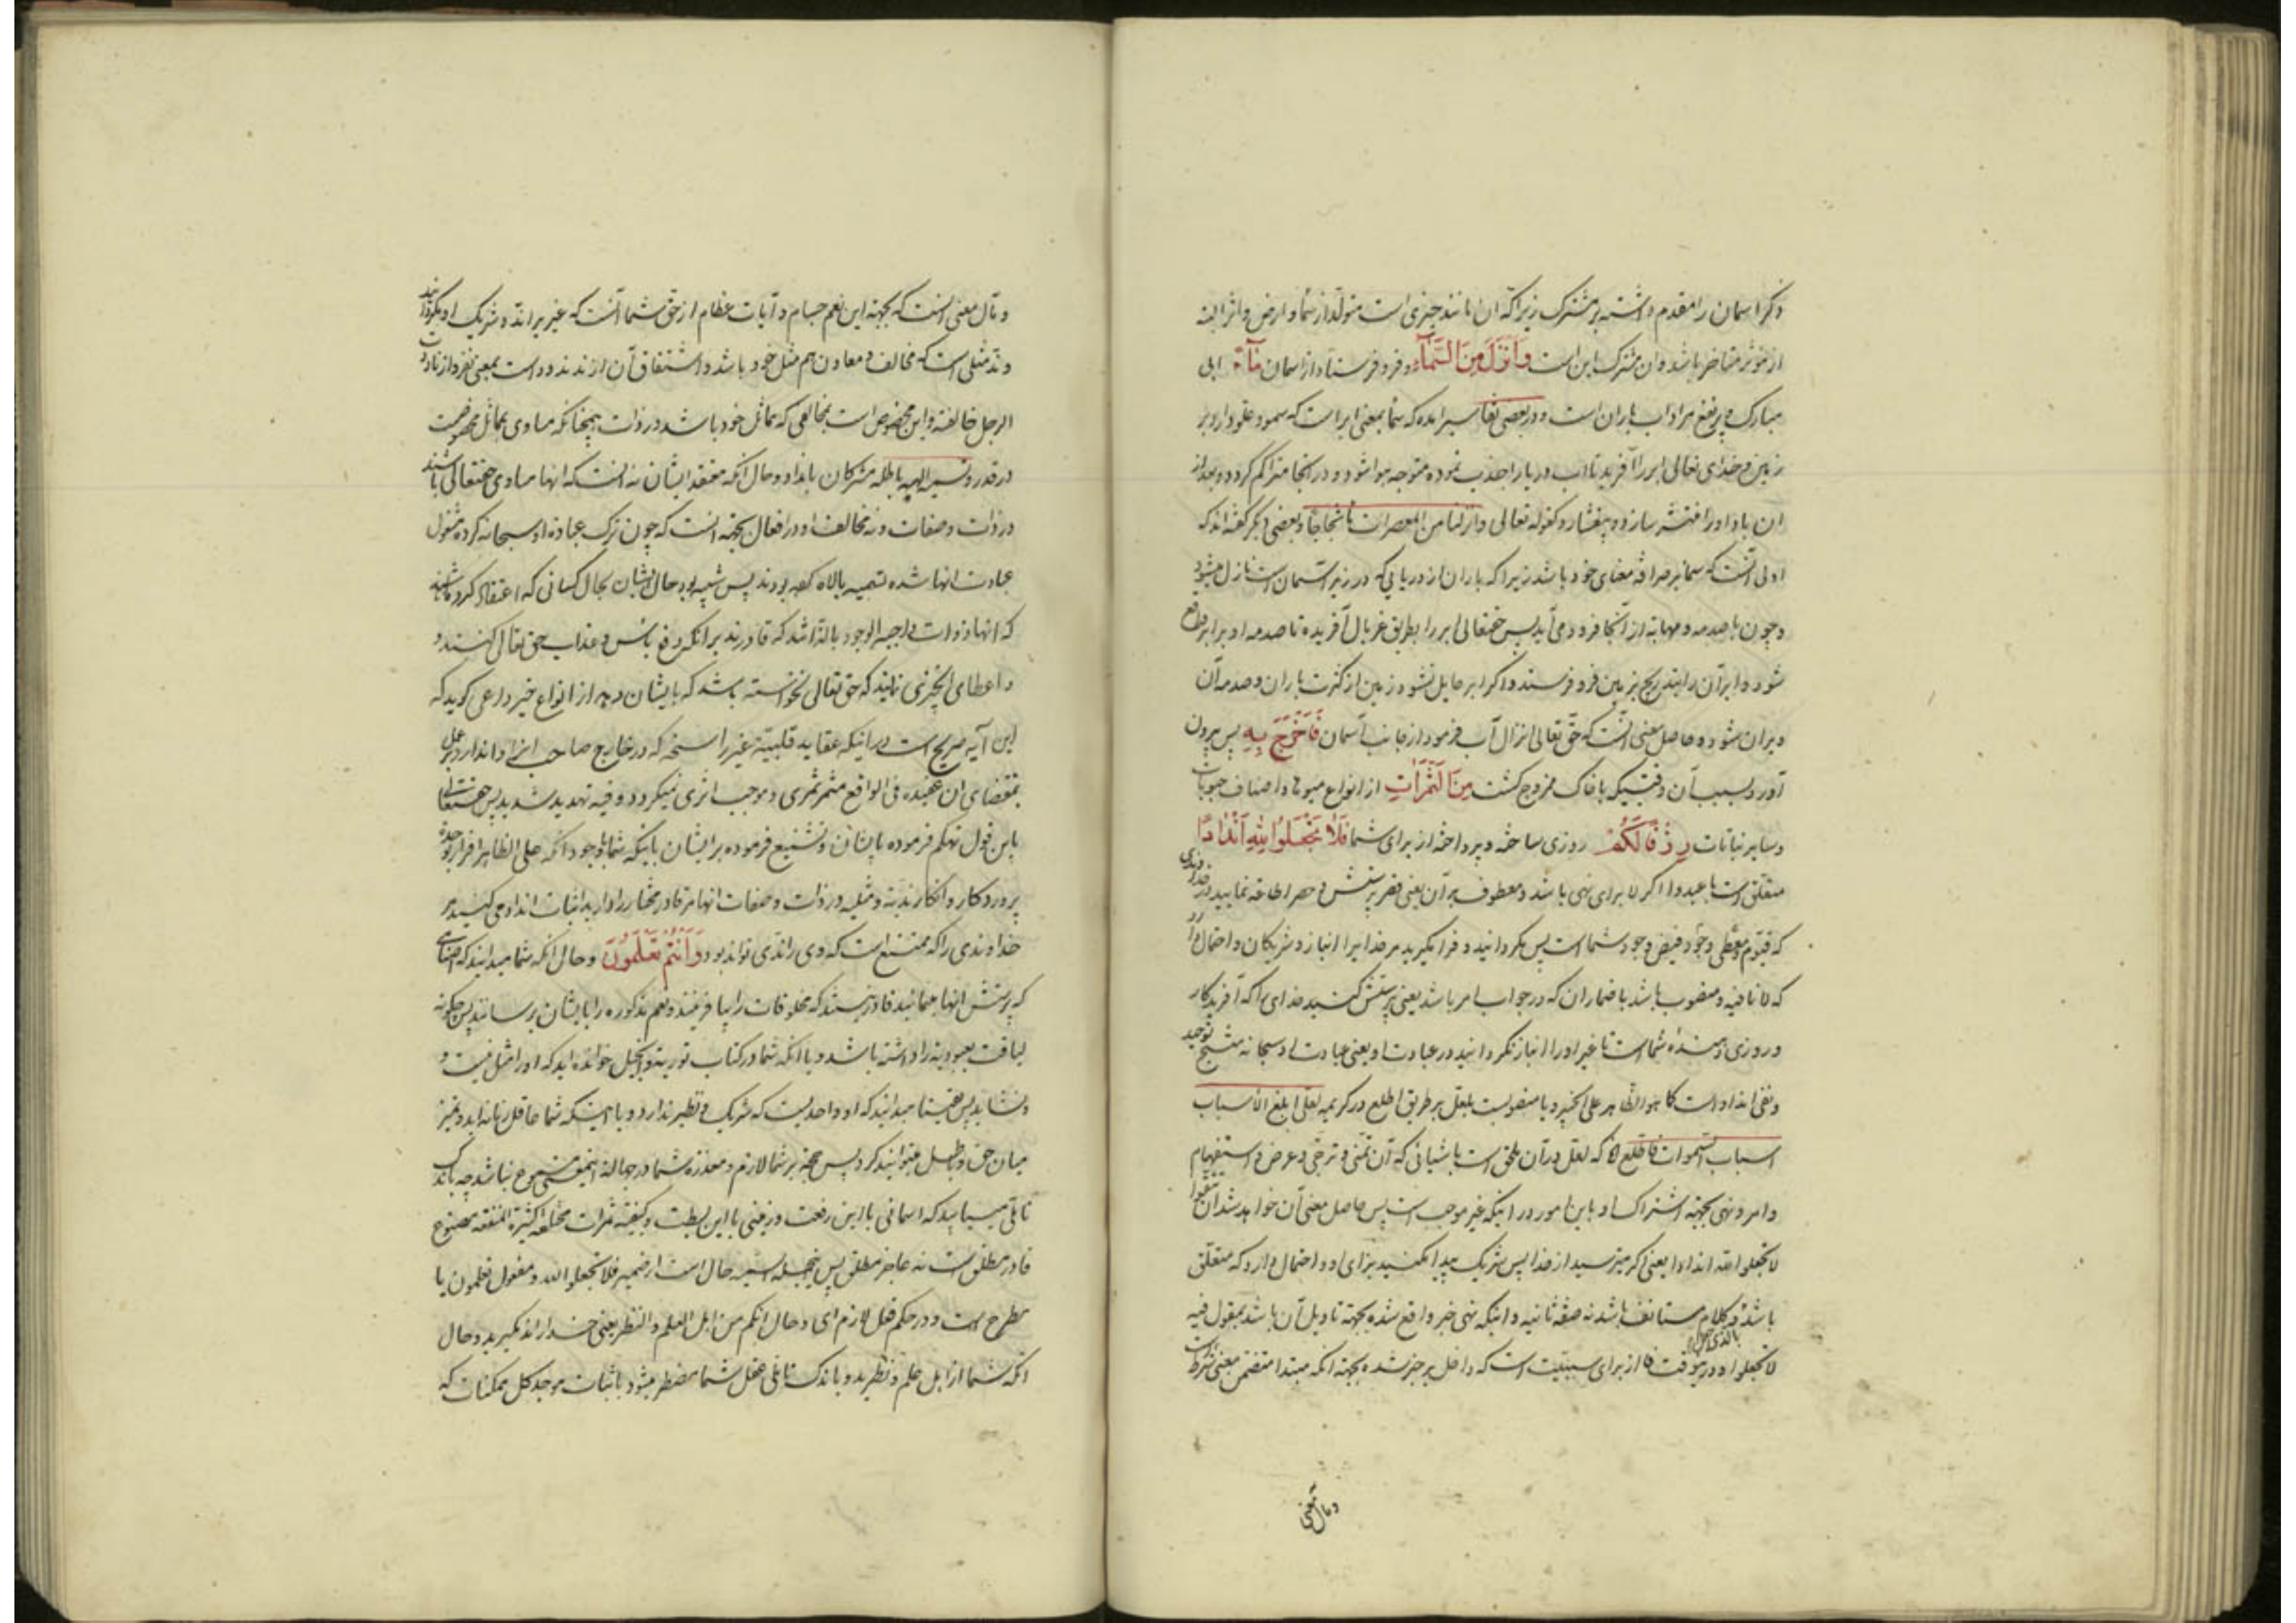 ذکر اسمان را مقدم داشته بر مشترک زیرا که ان مانند چیزی است متولد از سما و ارض و اثر البته
از موثر متاخر باشد و ان مشترک این است وَاَنْزَلَ مِنَ السَّمَآءِ و فرو فرستاد از اسمان مَآءً ابی
مبارک و پر نفع مراد اب باران است و در بعضی تفاسیر امده که سما بمعنی ابر است که سمو و علو دارد بر
زمین و خدای تعالی ابر را آفرید تا اب دریا را جذب نموده متوجه هوا شود و در انجا متراکم کردد و بعد از
ان باد او را منتشر سازد و بیفشارد کقوله تعالی وانزلنا من المعصرات ماء ثجاجا و بعضی دیگر گفته‌اند که
اولی آنست که سما بر صرافه معنای خود باشد زیرا که باران از دریایی که در زیر اسمان است نازل میشود
و چون با صدمه و مهابه از آنجا فرود می آید پس حقتعالی ابر را بطریق غربال آفریده تا صدمه او برابر واقع
شود و ابر آن را بتدریج بزمین فرو فرستد و اکر ابر حایل نشود زمین از کثرت باران و صدمه آن
ویران شود و حاصل معنی آنست که حق تعالی انزال آب فرمود از جانب آسمان فَاَخْرَجَ بِهِ پس بیرون
آورد بسبب آن وقتیکه با خاک ممزوج کشت مِنَ الثَّمَرَاتِ از انواع میوه‌ها و اصناف حبوبات
و سایر نباتات رِزْقًا لَكُمْ روزی ساخته و پرداخته از برای شما فَلَا تَجْعَلُوا لِلّٰهِ اَنْدَادًا
متعلق است باعبدوا اکر لا برای نهی باشد و معطوف بر آن یعنی قصر پرستش و حصر اطاعه نمایید در خداوندی
که قیوم و معطی وجود و فیض وجود شما است پس مکردانید و فرا مکیرید مر خدایرا انباز و شریکان و احتمال دارد
که لا نافیه و منصوب باشد باضمار ان که در جواب امر باشد یعنی پرستش کنید خدای را که آفریدکار
و روزی دهنده شما است تا غیر او را انباز نکردانید در عبادت او یعنی عبادت او سبحانه منتج توحید
و نفی انداد است کما هو الظاهر علی الخبیر و یا منصوبست بلعل بر طریق اطلع در کریمه لعلی ابلغ الاسباب
اسباب السموات فاطلع که لعل در آن ملحق است باشیائی که آن تمنی و ترجی و عرض و استفهام
و امر و نهی بجهة اشتراک او باین امور در اینکه غیر موجب است پس حاصل معنی آن خواهد شد ان تتقوا
لا تجعلوا لله اندادا یعنی اکر میترسید از خدا پس شریک پیدا مکنید برای او و احتمال دارد که متعلق
باشد و کلام مستانف باشد نه صفه ثانیه و اینکه نهی خبر واقع شده بجهة تاویل آن باشد بمقول فیه
لا تجعلوا و در این وقت فا از برای سببیت است که داخل بر خبر شده بجهة انکه مبتدا متضمن معنی شرط است
و مال معنی
و مآل معنی انست که بجهة این نعم جسام و آیات عظام از حق شما آنست که غیر را ند و شریک او نکردانید
و ند مثلی است که مخالف و معاون هم مثل خود باشد و اشتقاق آن از ند ندود است بمعنی نفر و از ناددت
الرجل خالفته و این مخصوص است بمخالفی که مماثل خود باشد در ذات همچنانکه مساوی بمماثل مخصوصست
در قدر و تسمیه الهه باطله مشرکان بانداد و حال آنکه معتقد ایشان نه انست که انها مساوی حقتعالی باشند
در ذات و صفات و نه مخالف او در افعال بجهة انست که چون ترک عبادة او سبحانه کرده مشغول
عبادت انها شده تسمیه بالاه کرده بودند پس شبیه بود حال ایشان بحال کسانی که اعتقاد کرده باشند
که انها ذوات واجب الوجود بالذاتند که قادرند بر انکه دفع باس و عذاب حق تعالی کنند و
و اعطای چیزی نمایند که حق تعالی نخواسته باشد که بایشان دهد از انواع خیر داعی کوید که
این آیه صریح است بر اینکه عقاید قلبیه غیر راسخه که در خارج صاحب انرا وا ندارد بر عمل
بمقتضای ان عقیده فی الواقع مثمر ثمری و موجب اثری نمیکردد و فیه تهدید شدید پس حقتعالی
باین قول تهکم فرموده بایشان و تشنیع فرموده بر ایشان باینکه شما با وجود آنکه علی الظاهر اقرار بوحدة
پروردکار و انکار ندیه و مثلیه در ذات و صفات انها مر قادر مختار را دارید اثبات انداد می کنید مر
خداوندی را که ممتنع است که وی را ندی تواند بود وَاَنْتُمْ تَعْلَمُونَ و حال آنکه شما میدانید که اصنامی
که پرستش انها مینمائید قادر نیستند که مخلوقات را بیافرینند و نعم مذکوره را بایشان برسانند پس چکونه
لیاقت معبودیه را داشته باشد و با انکه شما در کتاب توریة و انجیل خوانده‌اید که او را مثل نیست و
و نشاید پس یقینا میدانید که او واحدیست که شریک و نظیر ندارد و با اینکه شما عاقل زمانه‌اید و تمیز
میان حق و باطل میتوانید کرد پس حجه بر شما لازم و معذره شما در جهاله اینمعنی مسموع نباشد چه باندک
تاملی میباید که اسمانی باین رفعت و زمینی باین بسطت و کیفیه ثمرات مختلفه کثیرة المنفعه مصنوع
قادر مطلق است نه عاجز مطلق پس جمله اسمیه حال است از ضمیر فلا تجعلوا لله و مفعول تعلمون یا
مطرح است و در حکم فعل لازم ای و حال انکم من اهل العلم و النظر یعنی خدا را ند مکیرید و حال
آنکه شما از اهل علم و نظرید و باندک تاملی عقل شما مضطر میشود باثبات موجد کل ممکنات که